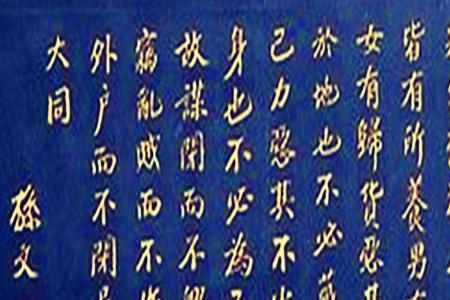 皆有所養男
女有歸貨惡其
於地也不必藏
己力惡其不出
身也不必為己
故謀閉而不興
竊亂賊而不作
外户而不閉是
大同
孫文